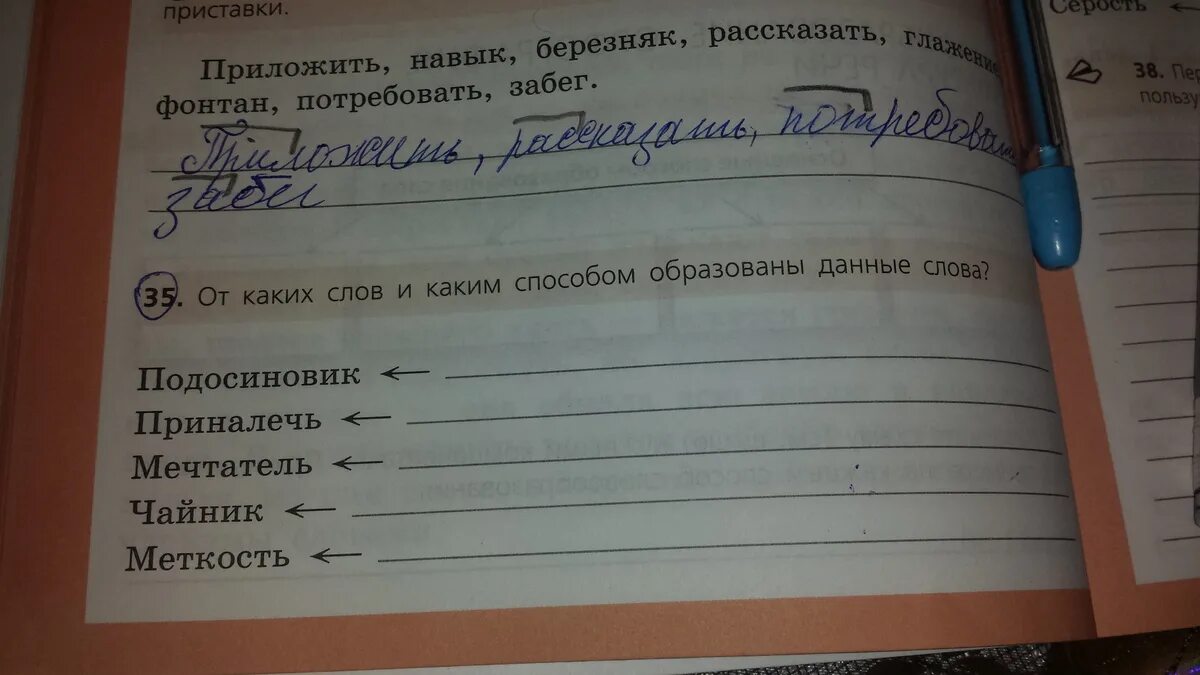 приставки.
Приложить, навык, березняк, рассказать, глажение
фонтан, потребовать, забег.
Приложить, рассказать, потребова
забег
35. От каких слов и каким способом образованы данные слова?
Подосиновик ←
Приналечь ←
Мечтатель ←
Чайник ←
Меткость ←
Серость ←
38. Пер
пользу